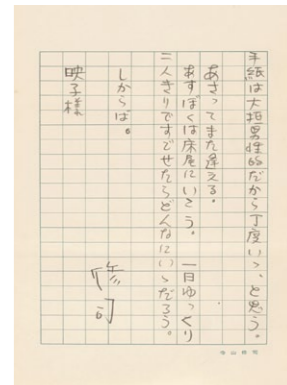 手紙は大抵男性的だから丁度いゝ、と思う。
あさってまた逢える。
あすぼくは床屋にいこう。 一日ゆっくり
二人きりですごせたらどんなにいゝだろう。
しからば。
修司
映子様